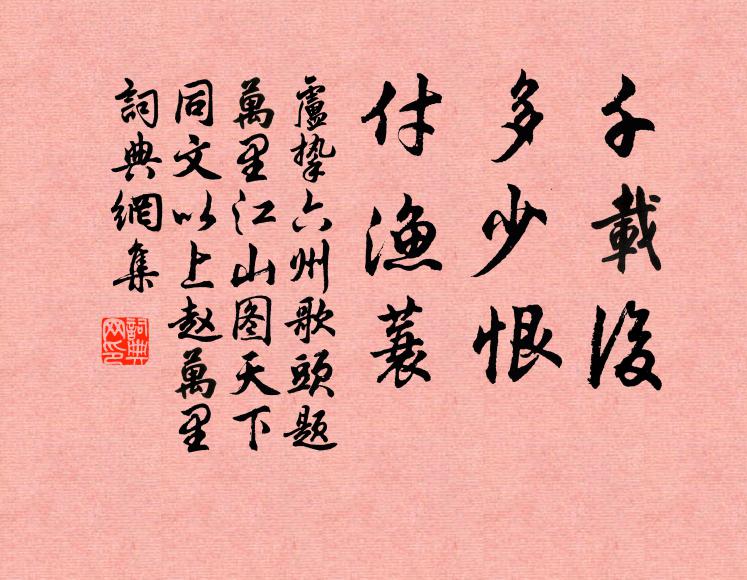 千載後
多少恨
付漁蓑
盧摯六州歌頭題
萬里江山图天下
同文以上赵萬里
詞典網集
詞典网印